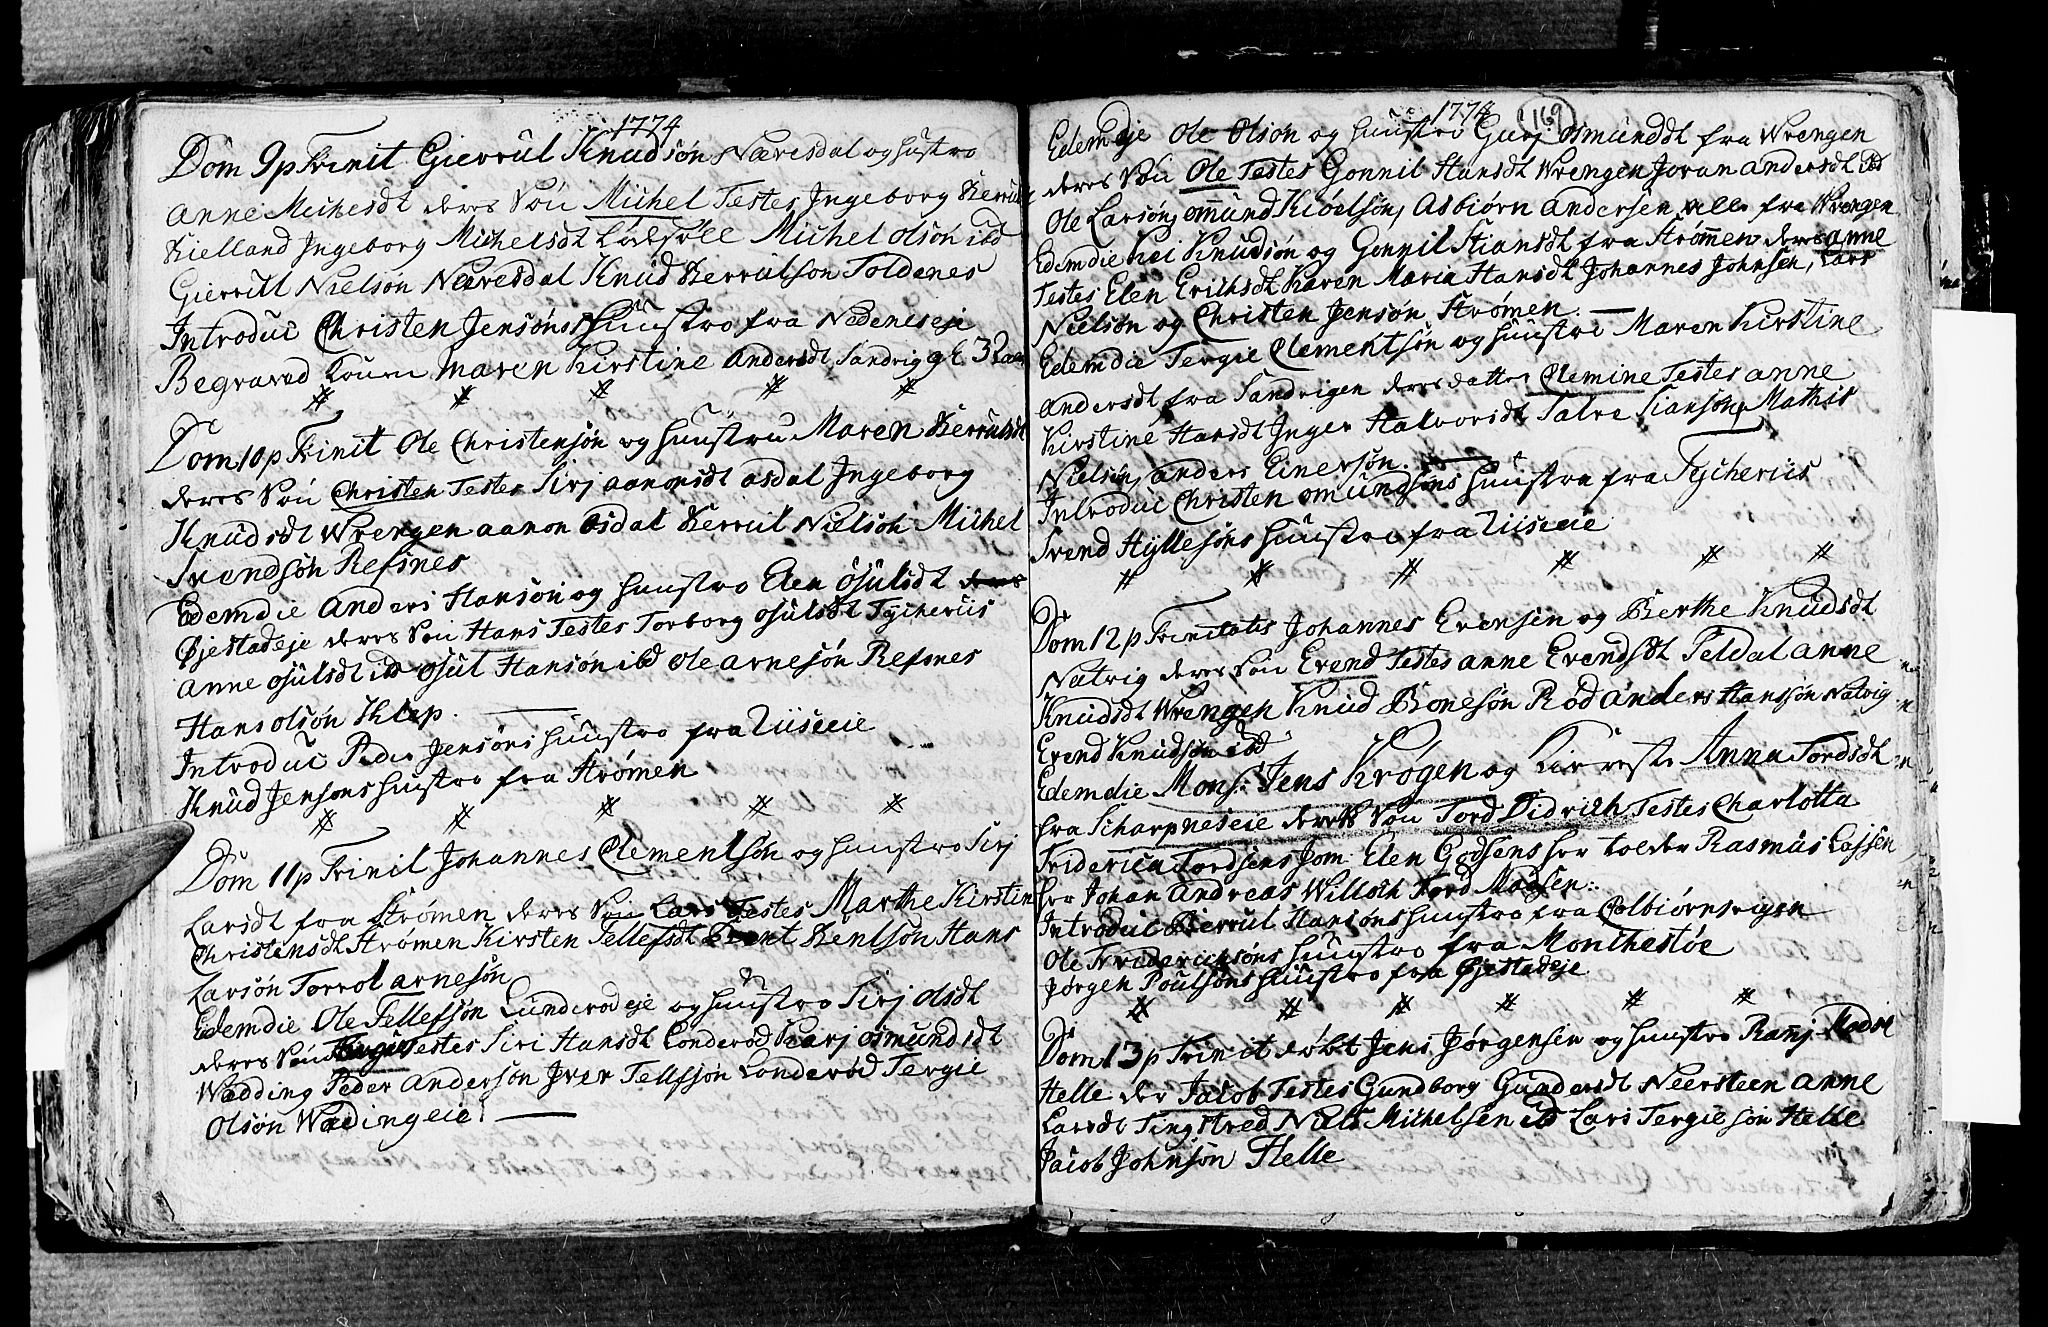 1774
Dom 9 p Trinit Gierrul Knudsøn Næresdal og hustro
Anne Michelsdt deres Søn Michel Testes Ingeborg
Kielland Ingeborg Michelsdt Michel Olsøn ibd
Gierrill Nielsøn Næresdal Knud Gerrulson Toldenes
Introduc Christen Jensøns huustro fra Nedeneseje
Begraved Maren Kirstine Andersdt Sandrig
Dom 10 p Trinit Ole Christensøn og huustru Maren Gerrulsdt
deres Søn Christen Testes Sirj Aanonsdt Asdal Ingeborg
Knudsdt Wrengen Aanon Osdal Gerrul Nielsøn Michel
Svendsøn Refsnes
Edemdie Anders Hansøn og huustro Elen Osulsdt deres
Øjestadeje deres Søn Hans Testes Torborg Osulsdt Tycheriis
Anne Osulsdt ibd Osul Hansøn ibd Ole Arnesøn Refsnes
Hans Olsøn Klep.
Introduc Peder Jensøns huustro fra Viiseeie
Knud Jensøns hustro fra Strømen
Dom 11 p Trinit Johannes Clementsøn og huustro Sirj
Larsdt fra Strømen deres Søn Lars Testes Marthe Kirstin
Christensdt Strømen Kirsten Tellefsdt Gent Gentsøn Hans
Larsøn Torrol Arnesøn
Edemdie Ole Tellefsøn Lunderødeje og huustro Sirj Olsdt
deres Søn Testes Siri Hansdt Londerød Karj Osmundsdt
Wædding Peder Andersøn Iver Tellfsøn Londerød Tergie
Olsøn Wædingeie
1774
169
Edemdje Ole Olsøn og huustro Gurj Osmunddt fra Wrengen
deres Søn Ole Testes Gonnil Hansdt Wrengen Joran Andersdt ibd
Ole Larsøn, Omund Kiøelsøn, Asbiørn Andersen alle fra Wrengen
Edemdie Kei Knudsøn og Gonnil Stiansdt fra Strømen deres Anne
Testes Elen Erichsdt Karen Maria Hansdt Johannes Johnsen, Lars
Nielsøn og Christen Jensøn Strømen.
Edemdie Tergie Clementsøn og huustro Maren Kirstine
Andersdt fra Sandrigen deres datter Clemine Testes Anne
Kirstine Hansdt Inger Halvorsdt Salve Stiansøn, Mathis
Nielsøn, Anders Einersøn.
Introduc Christen Omundsøns huustro fra Tycheriis
Svend Hyllesøns huustro fra Viiseeie
Dom 12 p Trinitatis Johannes Evensen og Berthe Knudsdt
Natvig deres Søn Evend Testes Anne Evendsdt Teldal Anne
Knudsdt Wrengen Knud Bonesøn Rød Anders Hansøn Natvig
Evend Knudsøn ibd
Edemdie Mons: Jens Krøgen og Kiereste Anna Tordsdt
fra Scharpneseie deres Søn Tord Didrich Testes Charlotta
Friderica Tordsens Jom: Elen Godsens hør Tolder Rasmus Lassen
hør Johan Andreas Willoch Tord Madsen.
Introduc Gierrul Hansøns huustro fra Colbiørnsvigen
Ole Friderichsøns huustro fra Monchestøe
Jørgen Poulsøns huustro fra Øjestadeje
Dom 13 p Trinit døbt Jens Jørgensen og huustro Ranj
Helle der Jacob Testes Gundborg Gundersdt Neersteen Anne
Larsdt Tingstved Niels Michelsen ibd Lars Tergiesøn Helle
Jacob Johnsøn Helle